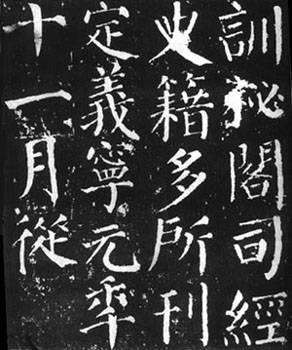 訓秘閣司經
史籍多所刊
定義寧元年
十一月從